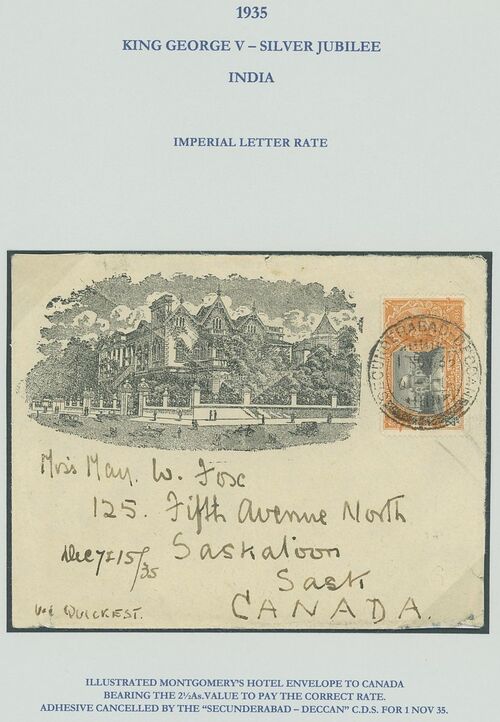 1935
KING GEORGE V – SILVER JUBILEE
INDIA
IMPERIAL LETTER RATE
SECUNDERABAD-DECCAN
Miss May. W. Fox
125. Fifth Avenue North
Saskatoon
Dec 7 15/35
Sask
CANADA.
QUICKEST.
ILLUSTRATED MONTGOMERY'S HOTEL ENVELOPE TO CANADA
BEARING THE 2½As.VALUE TO PAY THE CORRECT RATE.
ADHESIVE CANCELLED BY THE "SECUNDERABAD – DECCAN" C.D.S. FOR 1 NOV 35.